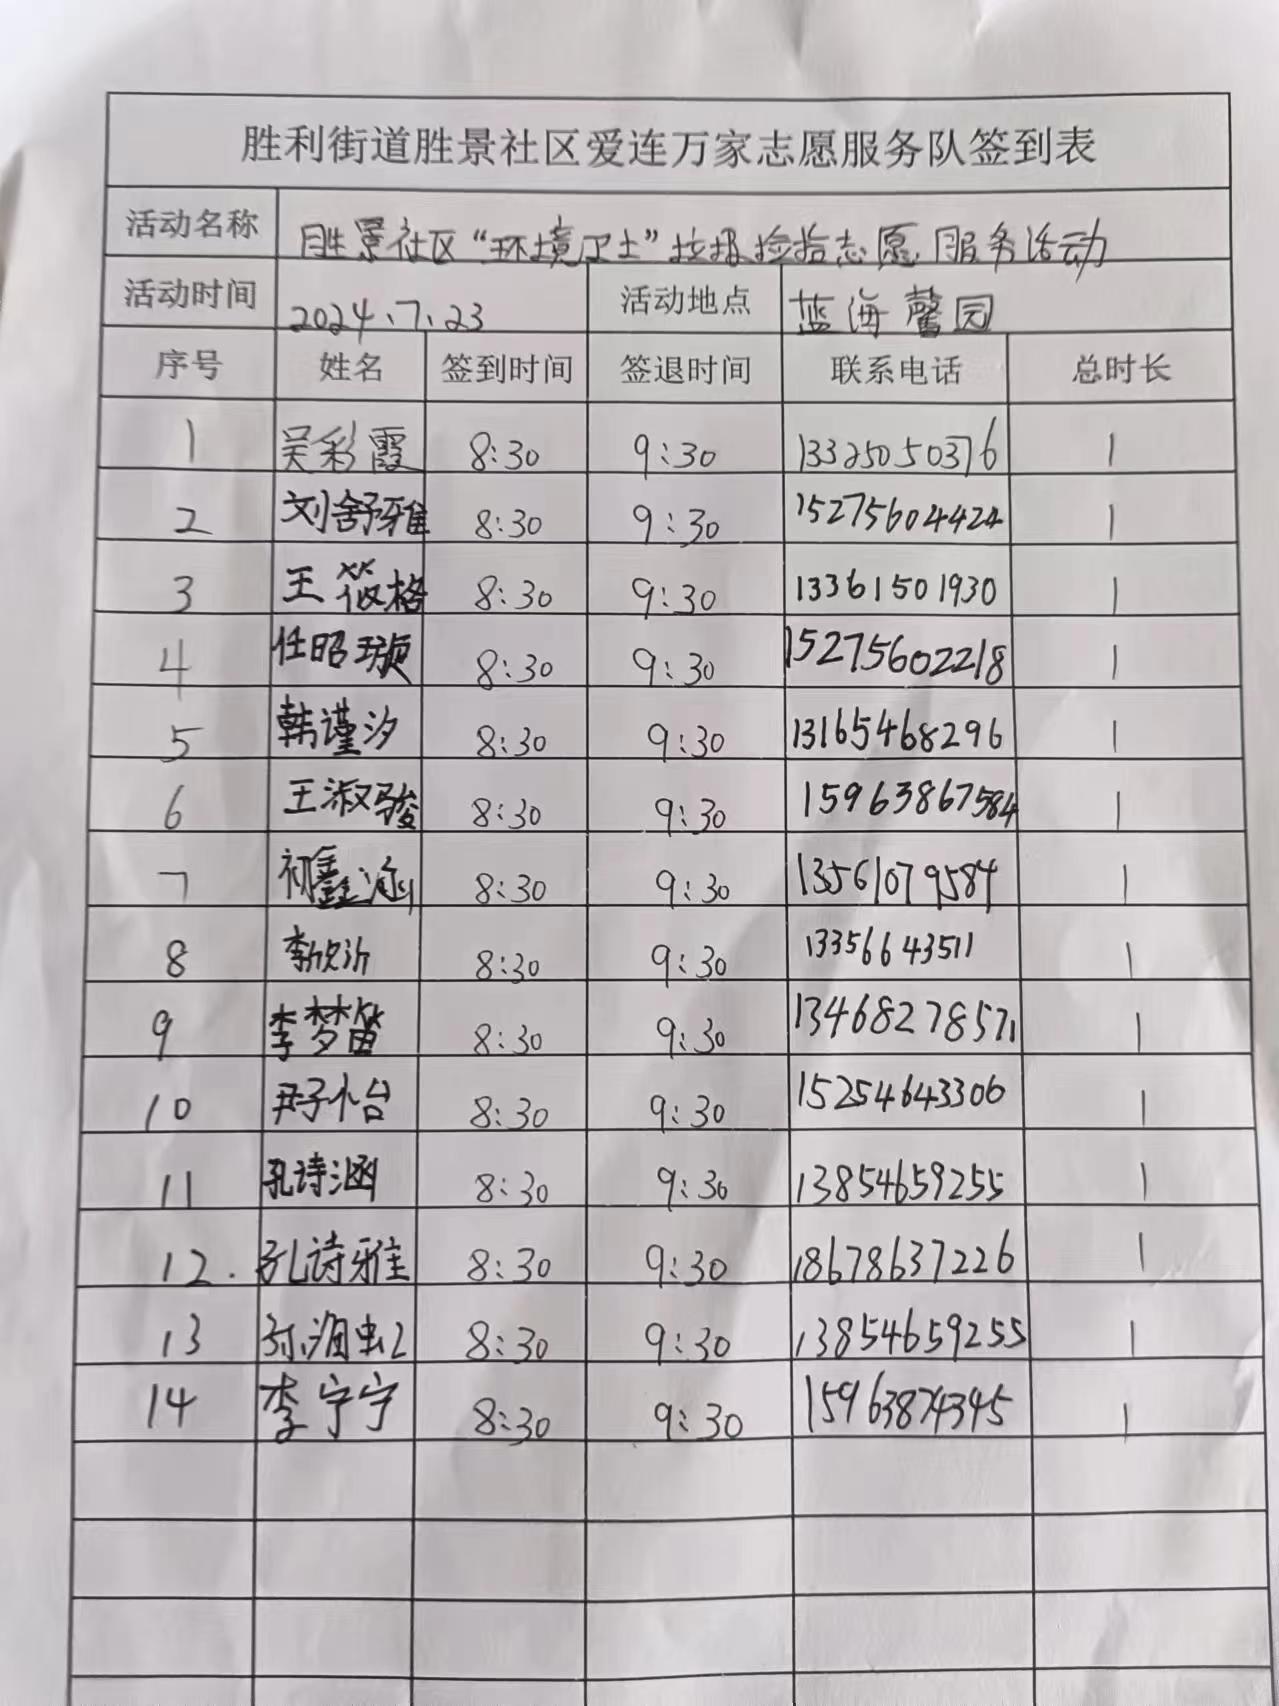 胜利街道胜景社区爱连万家志愿服务队签到表
活动名称 胜景社区“环境卫士”垃圾捡拾志愿服务活动
活动时间 2024、7、23 活动地点 蓝海馨园
序号 姓名 签到时间 签退时间 联系电话 总时长
1 吴彩霞 8:30 9:30 13325050376 1
2 刘舒雅 8:30 9:30 15275604424 1
3 王筱格 8:30 9:30 13361501930 1
4 任昭璇 8:30 9:30 15275602218 1
5 韩谨汐 8:30 9:30 13165468296 1
6 王淑骏 8:30 9:30 15963867584 1
7 初鑫涵 8:30 9:30 13561079584 1
8 李欣沂 8:30 9:30 13356643511 1
9 李梦笛 8:30 9:30 13468278571 1
10 尹子怡 8:30 9:30 15254643306 1
11 孔诗涵 8:30 9:30 13854659255 1
12. 孔诗雅 8:30 9:30 18678637226 1
13 8:30 9:30 13854659255 1
14 李宁宁 8:30 9:30 15963874345 1